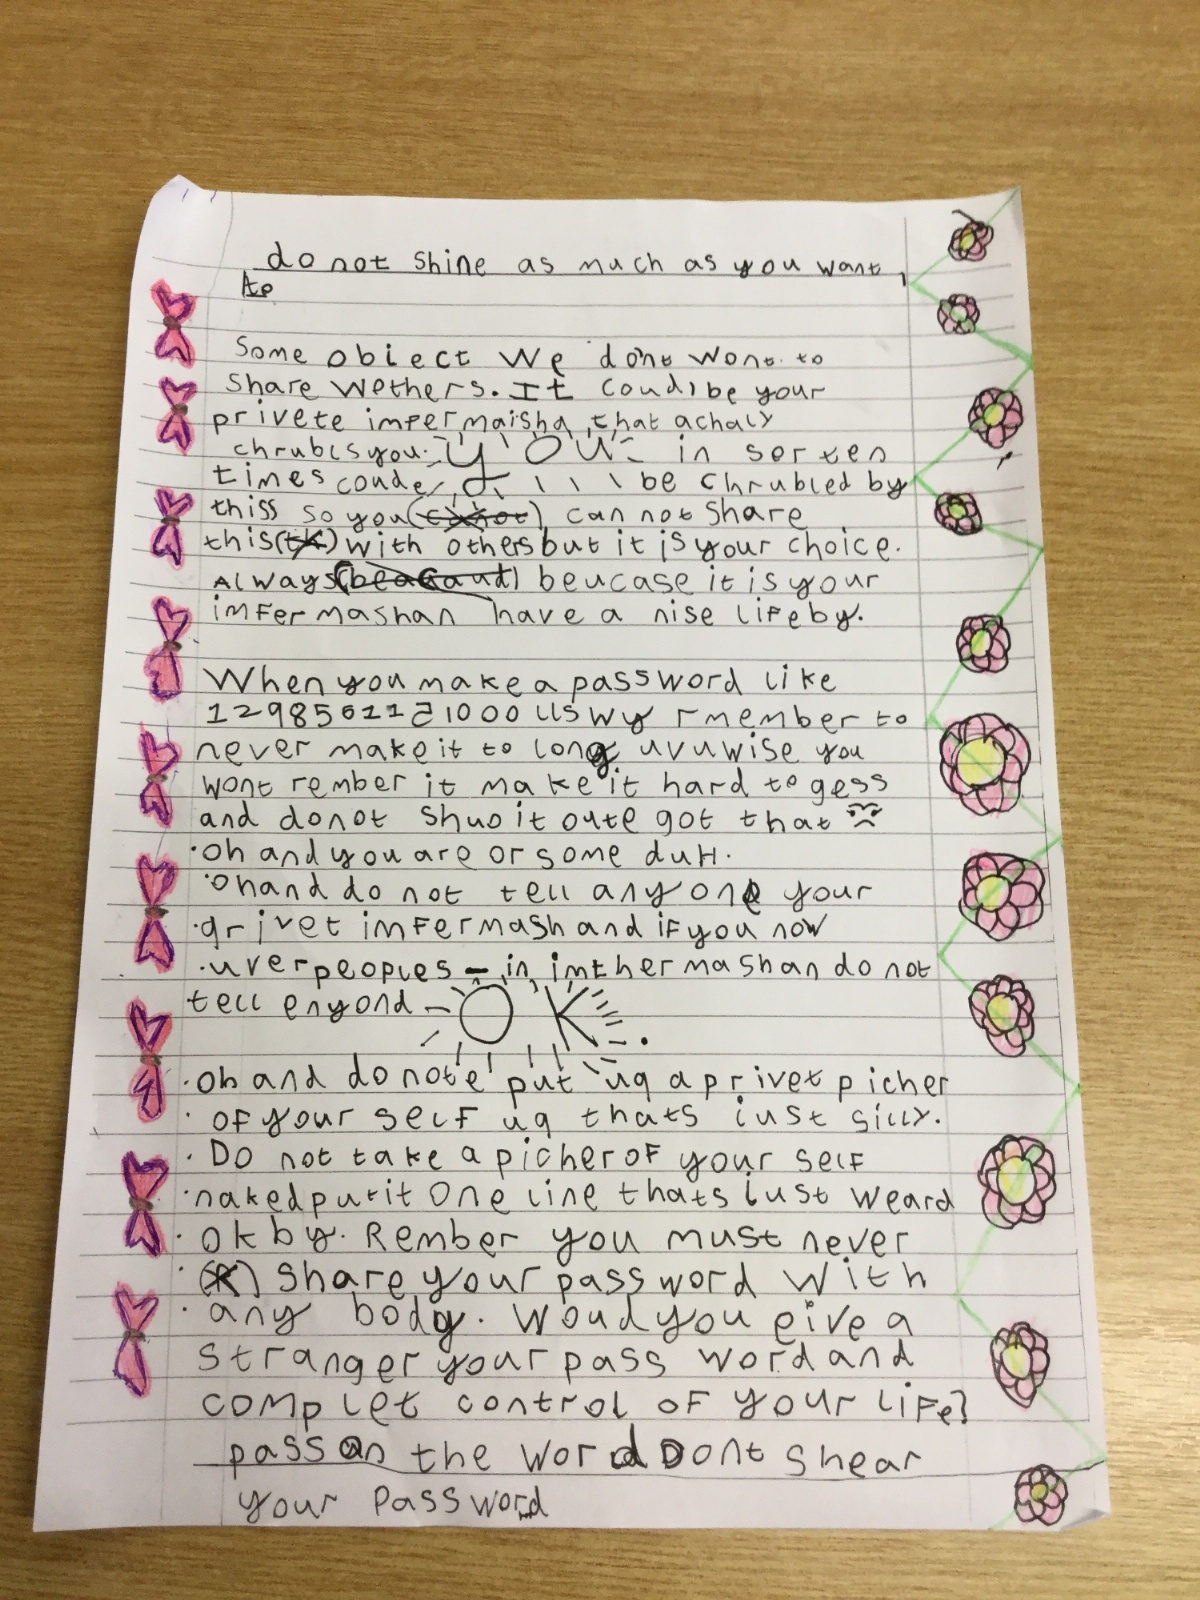 do not shine as much as you want
to
Some obiect we dont wont to
share wethers. It coudl be your
privete imfermaisha that achaly
chrubls you. you in serten
times coude be chrubled by
thiss so you can not share
this with others but it is your choice.
Always beucase it is your
imfermashan have a nise life by.
When you make a password like
1298561121000 llswy rmember to
never make it to long uvuwise you
wont rember it make it hard to gess
and donot shuo it oute got that
·oh and you are or some duH.
·oh and do not tell any one your
·privet imfermash and if you now
·uver peoples in imthermashan do not
tell enyond OK.
·oh and do note put up a privet picher
·of your self up thats iust silly.
·Do not take a picher of your self
·naked put it one line thats iust weard
·ok by. Rember you must never
·share your password with
·any body. Woud you give a
stranger your pass word and
complet control of your life?
pass on the word Dont shear
your password